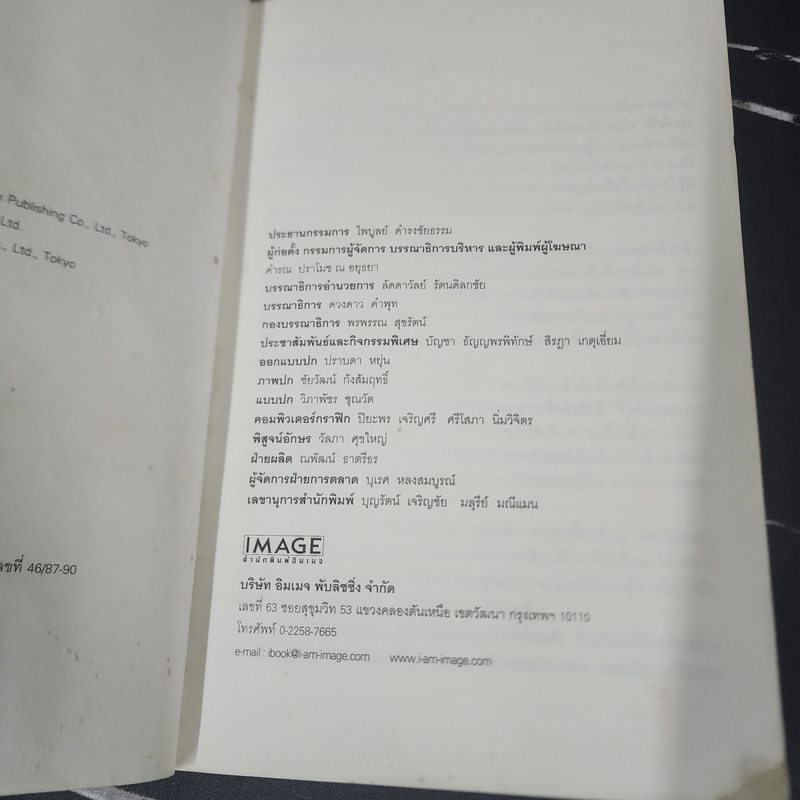 Publishing Co., Ltd., Tokyo
Ltd.
Ltd., Tokyo
เลขที่ 46/87-90
ประธานกรรมการ ไพบูลย์ ดำรงชัยธรรม
ผู้ก่อตั้ง กรรมการผู้จัดการ บรรณาธิการบริหาร และผู้พิมพ์ผู้โฆษณา
คำรณ ปราโมช ณ อยุธยา
บรรณาธิการอำนวยการ ลัดดาวัลย์ รัตนดิลกชัย
บรรณาธิการ ดวงดาว คำพุท
กองบรรณาธิการ พรพรรณ สุขรัตน์
ประชาสัมพันธ์และกิจกรรมพิเศษ บัญชา ธัญญพรพิทักษ์ สิรฎา เกตุเอี่ยม
ออกแบบปก ปราบดา หยุ่น
ภาพปก ชัยวัฒน์ กังสัมฤทธิ์
แบบปก วิภาพัชร ชุณวัต
คอมพิวเตอร์กราฟิก ปิยะพร เจริญศรี ศรีโสภา นิ่มวิจิตร
พิสูจน์อักษร วัลภา ศุขใหญ่
ฝ่ายผลิต ณพัฒน์ ธาตรีธร
ผู้จัดการฝ่ายการตลาด บุเรศ หลงสมบูรณ์
เลขานุการสำนักพิมพ์ บุญรัตน์ เจริญชัย มลุรีย์ มณีแมน
IMAGE
สำนักพิมพ์อิมเมจ
บริษัท อิมเมจ พับลิชชิ่ง จำกัด
เลขที่ 63 ซอยสุขุมวิท 53 แขวงคลองตันเหนือ เขตวัฒนา กรุงเทพฯ 10110
โทรศัพท์ 0-2258-7665
e-mail : ibook@i-am-image.com www.i-am-image.com